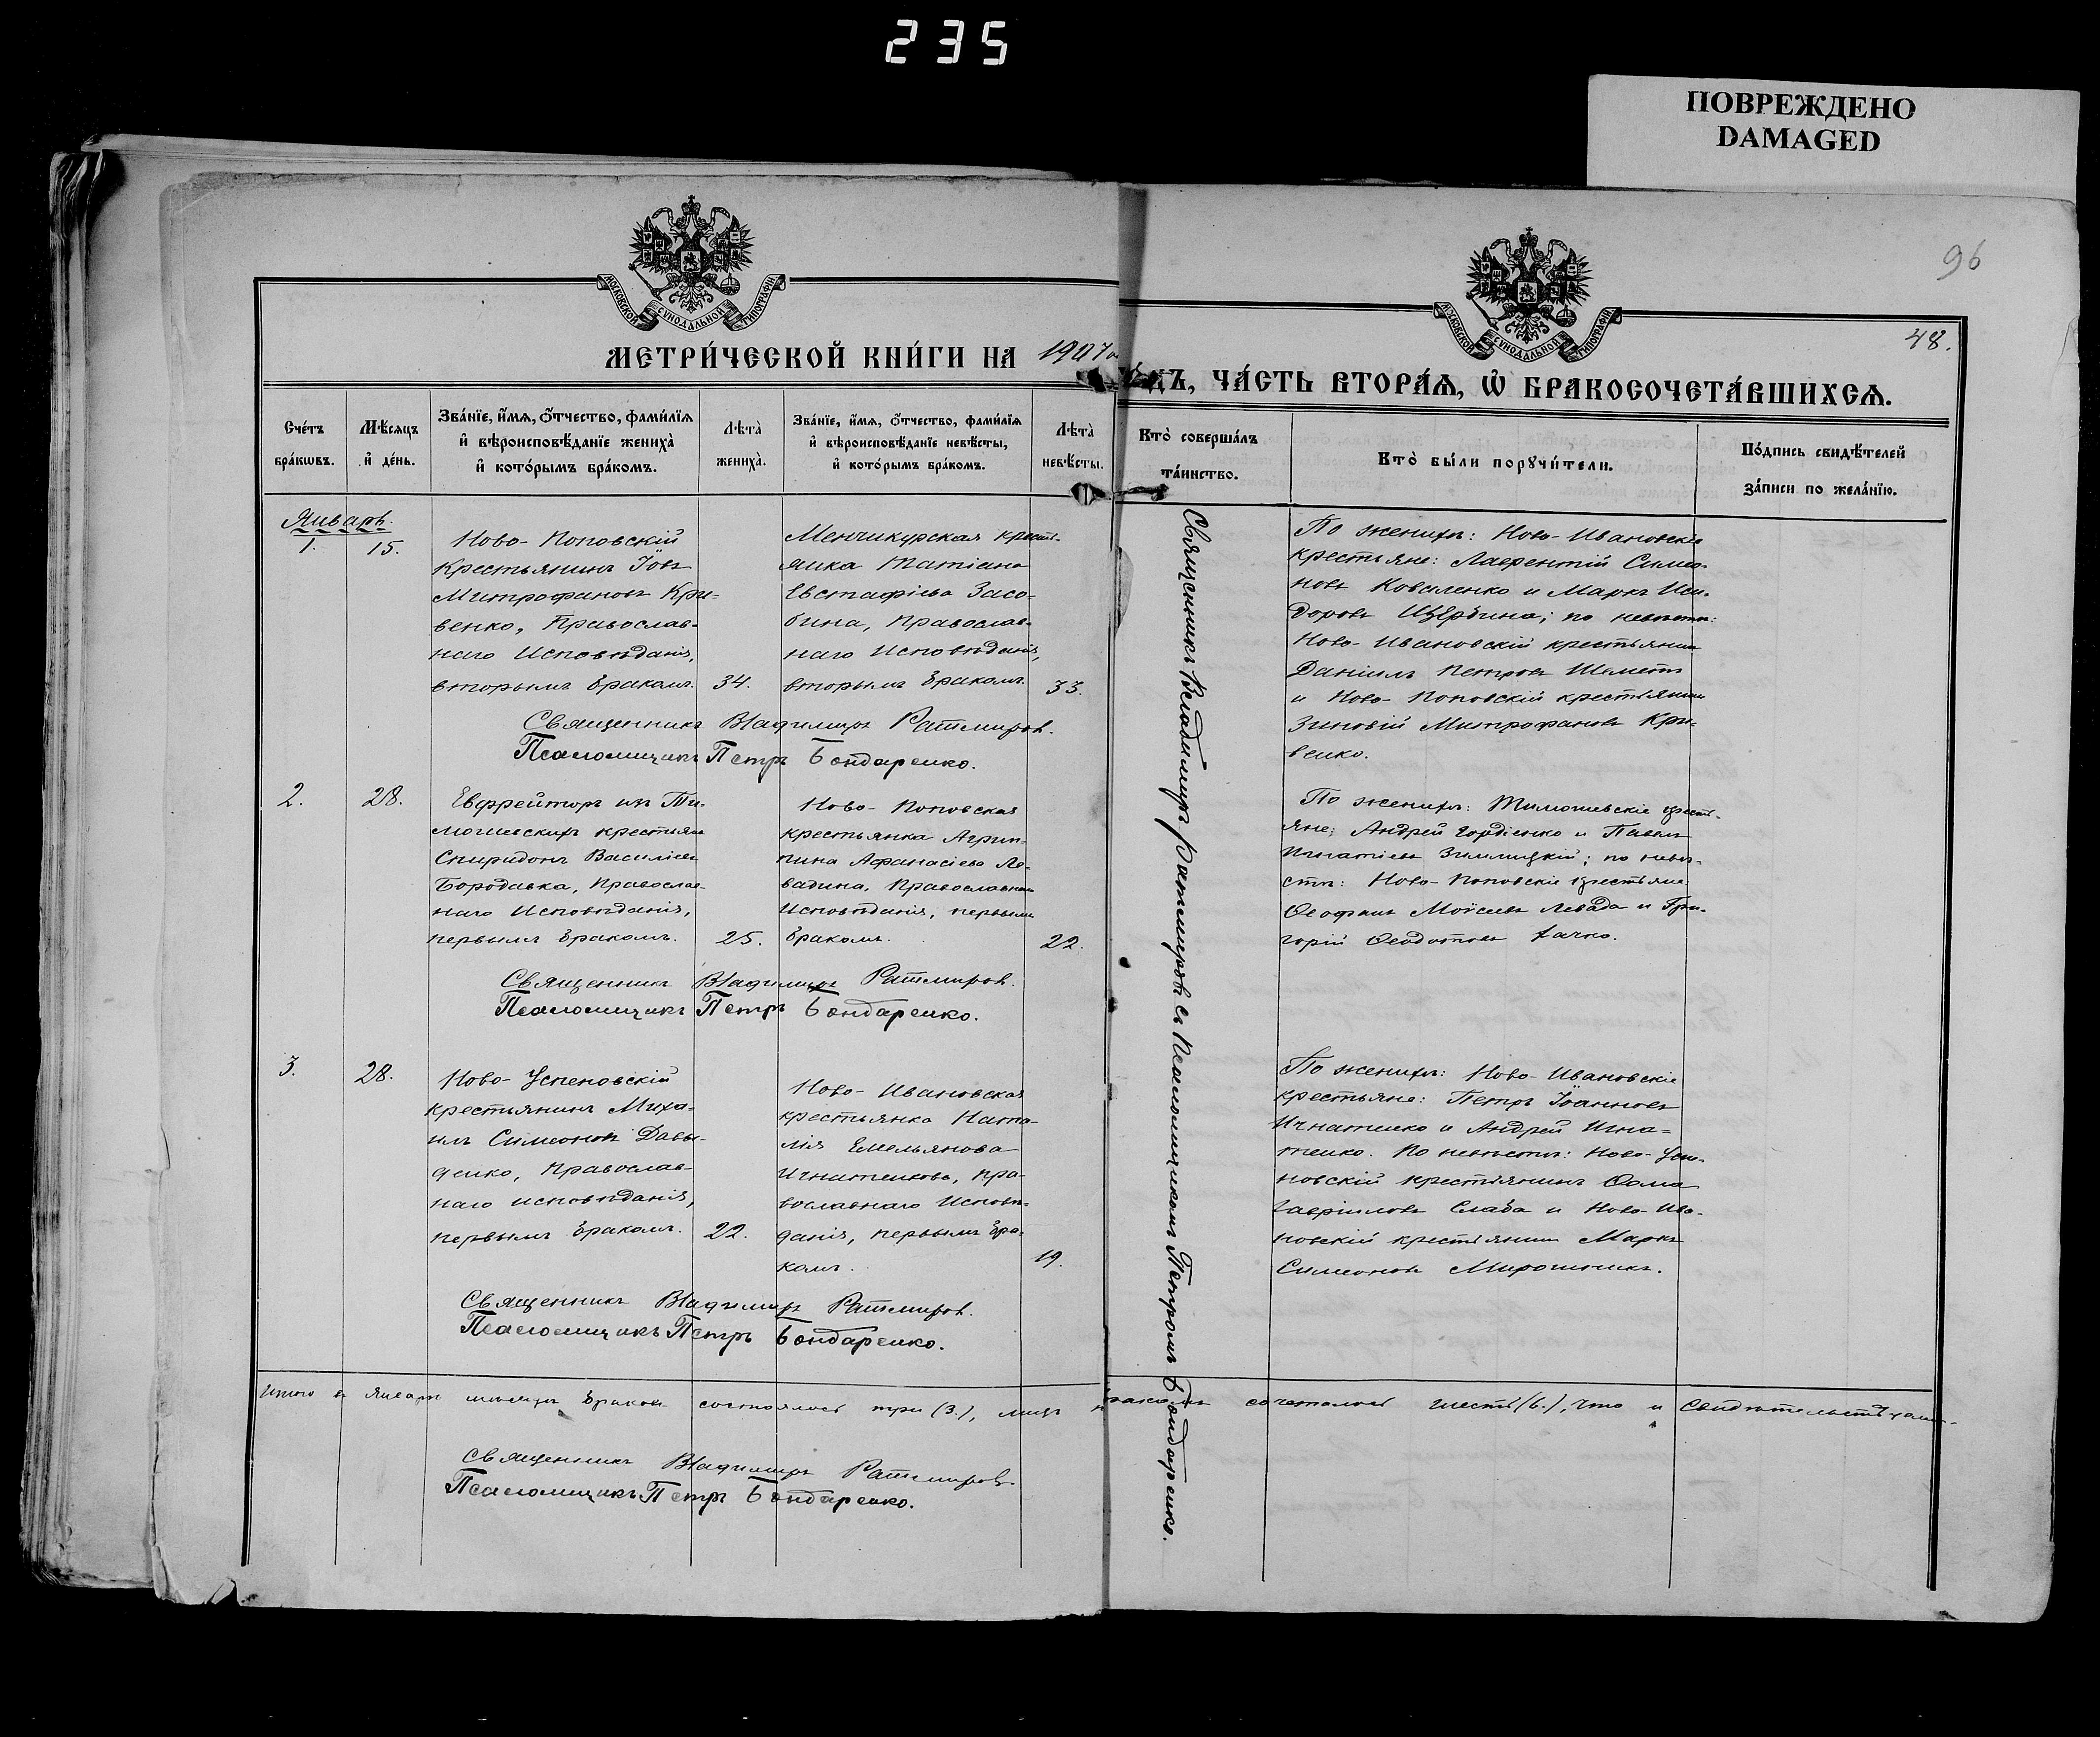 235
ПОВРЕЖДЕНО
DAMAGED
96
48.
МОСКОВСКОЙ СѴНОДАЛЬНОЙ ТИПОГРАФІИ
МОСКОВСКОЙ СѴНОДАЛЬНОЙ ТИПОГРАФІИ
МЕТРИ́ЧЕСКОЙ КНИ́ГИ НА 1907
ДЪ, ЧА́СТЬ ВТОРА́Ѧ, Ѡ БРАКОСОЧЕТА́ВШИХСѦ.
Сче́тъ бра́кѡвъ.
Мѣ́сяцъ и҆ де́нь.
Зва́нїе, и҆́мѧ, ѻ҆́тчество, фами́лїѧ
и҆ вѣроисповѣ́данїе жениха̀
и҆ кото́рымъ бра́комъ.
Лѣта̀ жениха̀.
Зва́нїе, и҆́мѧ, ѻ҆́тчество, фами́лїѧ
и҆ вѣроисповѣ́данїе невѣ́сты,
и҆ кото́рымъ бра́комъ.
Лѣта̀ невѣ́сты.
Кто̀ соверша́лъ та́инство.
Кто̀ бы́ли порꙋчи́тели.
По́дпись свидѣ́телей за́писи по жела́нїю.
Январь.
1. 15.
Ново-Поповскій
крестьянинъ Іовъ
Митрофановъ Кри-
венко, Православ-
наго Исповѣданія,
вторымъ бракомъ. 34.
Менчикурская крестья-
нка Татіана
Евстафіева Засо-
бина, Православ-
наго Исповѣданія,
вторымъ бракомъ. 33.
Священникъ Владимиръ Ратмировъ.
Псаломщикъ Петръ Бондаренко.
По женихѣ: Ново-Ивановскіе
крестьяне: Лаврентій Симео-
новъ Коваленко и Маркъ Иси-
доровъ Щербина; по невѣстѣ:
Ново-Ивановскій крестьянин
Даніилъ Петровъ Шеметъ
и Ново-Поповскій крестьянин
Зиновій Митрофановъ Кри-
венко.
2. 28.
Евфрейторъ изъ Ти-
мошевскихъ крестьян
Спиридонъ Василіевъ
Бородавка, Православ-
наго Исповѣданія,
первымъ бракомъ. 25.
Ново-Поповская
крестьянка Агрип-
пина Афанасіева Ле-
вадина, Православнаго
Исповѣданія, первымъ
бракомъ. 22.
Священникъ Владимиръ Ратмировъ.
Псаломщикъ Петръ Бондаренко.
По женихѣ: Тимошевскіе кресть-
яне: Андрей Гордіенко и Павелъ
Игнатіевъ Зимлицкій; по невѣ-
стѣ: Ново-Поповскіе крестьяне:
Ѳеофанъ Моѵсеевъ Левада и Гри-
горій Ѳеодотовъ Гачко.
3. 28.
Ново-Успеновскій
крестьянинъ Миха-
илъ Симеоновъ Давы-
денко, Православ-
наго исповѣданія,
первымъ бракомъ. 22.
Ново-Ивановская
крестьянка Ната-
лія Емельянова
Игнатенкова, Пра-
вославнаго Исповѣ-
данія, первымъ бра-
комъ. 19.
Священникъ Владимиръ Ратмировъ.
Псаломщикъ Петръ Бондаренко.
По женихѣ: Ново-Ивановскіе
крестьяне: Петръ Іоанновъ
Игнатенко и Андрей Игна-
тенко. По невѣстѣ: Ново-Успе-
новскій крестьянинъ Ѳома
Гавріиловъ Слаба и Ново-Ива-
новскій крестьянин Маркъ
Симеоновъ Мирошникъ.
Священникъ Владимиръ Ратмировъ съ Псаломщикомъ Петромъ Бондаренко.
Итого въ Январѣ мѣсяцѣ браковъ состоялось три (3.), лицъ бракомъ сочеталось шесть (6.), что и свидѣтельствуемъ.
Священникъ Владимиръ Ратмировъ
Псаломщикъ Петръ Бондаренко.